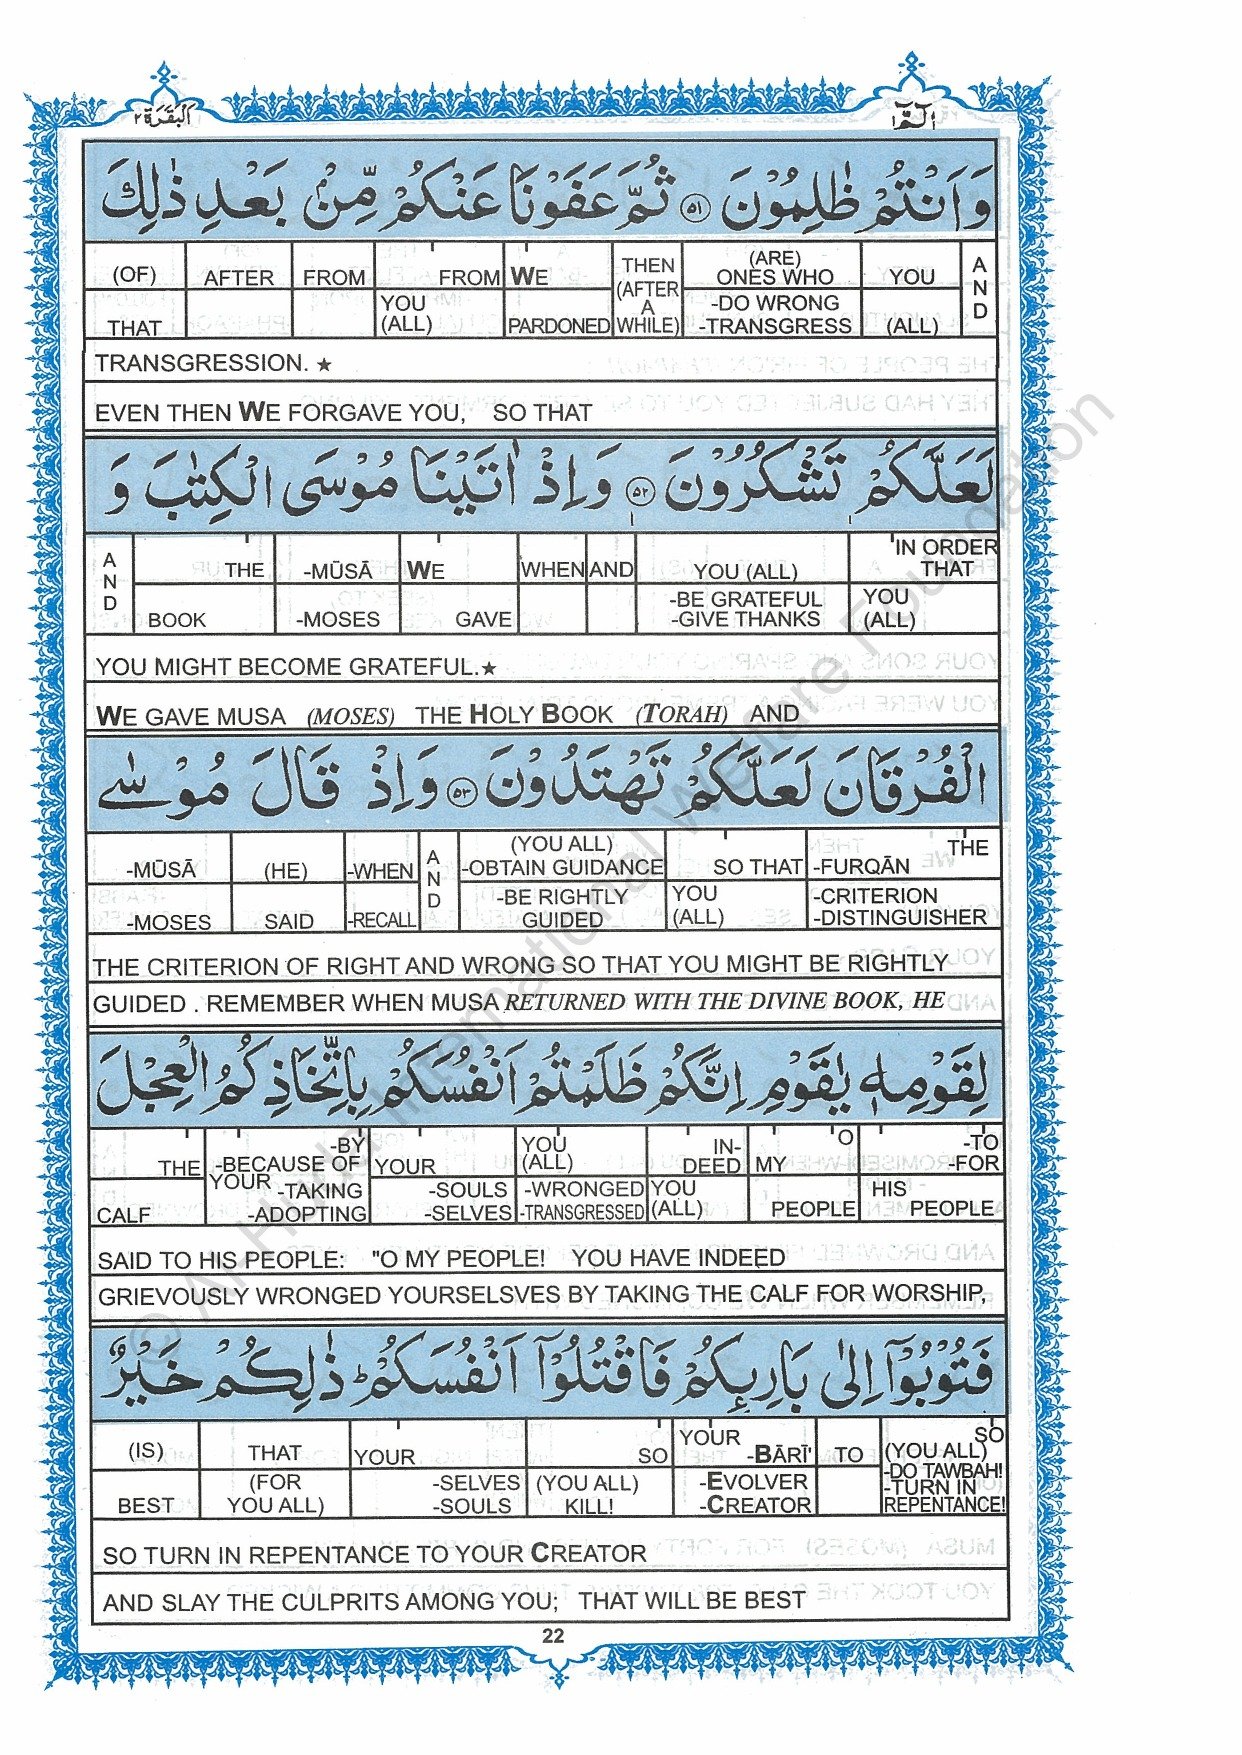 البقرة ٢
الٓمّٓ ١
وَاَنْتُمْ ظٰلِمُوْنَ ۝٥١ ثُمَّ عَفَوْنَا عَنْكُمْ مِّنْۢ بَعْدِ ذٰلِكَ
(OF) AFTER FROM FROM WE THEN (AFTER A WHILE) (ARE) ONES WHO YOU AND
THAT YOU (ALL) PARDONED -DO WRONG -TRANSGRESS (ALL)
TRANSGRESSION. ★
EVEN THEN WE FORGAVE YOU, SO THAT
لَعَلَّكُمْ تَشْكُرُوْنَ ۝٥٢ وَاِذْ اٰتَيْنَا مُوْسَى الْكِتٰبَ وَ
AND THE -MŪSĀ WE WHEN AND YOU (ALL) IN ORDER THAT
BOOK -MOSES GAVE -BE GRATEFUL -GIVE THANKS YOU (ALL)
YOU MIGHT BECOME GRATEFUL.★
WE GAVE MUSA (MOSES) THE HOLY BOOK (TORAH) AND
الْفُرْقَانَ لَعَلَّكُمْ تَهْتَدُوْنَ ۝٥٣ وَاِذْ قَالَ مُوْسٰى
-MŪSĀ (HE) -WHEN AND (YOU ALL) -OBTAIN GUIDANCE SO THAT THE -FURQĀN
-MOSES SAID -RECALL -BE RIGHTLY GUIDED YOU (ALL) -CRITERION -DISTINGUISHER
THE CRITERION OF RIGHT AND WRONG SO THAT YOU MIGHT BE RIGHTLY
GUIDED . REMEMBER WHEN MUSA RETURNED WITH THE DIVINE BOOK, HE
لِقَوْمِهٖ يٰقَوْمِ اِنَّكُمْ ظَلَمْتُمْ اَنْفُسَكُمْ بِاتِّخَاذِكُمُ الْعِجْلَ
THE -BY -BECAUSE OF YOUR YOU (ALL) IN-DEED O MY -TO -FOR
CALF YOUR -TAKING -ADOPTING -SOULS -SELVES -WRONGED -TRANSGRESSED YOU (ALL) PEOPLE HIS PEOPLE
SAID TO HIS PEOPLE: "O MY PEOPLE! YOU HAVE INDEED
GRIEVOUSLY WRONGED YOURSELSVES BY TAKING THE CALF FOR WORSHIP,
فَتُوْبُوْٓا اِلٰى بَارِىِٕكُمْ فَاقْتُلُوْٓا اَنْفُسَكُمْ ؕ ذٰلِكُمْ خَيْرٌ
(IS) THAT YOUR SO YOUR -BĀRĪ' TO SO (YOU ALL) -DO TAWBAH! -TURN IN REPENTANCE!
BEST (FOR YOU ALL) -SELVES -SOULS (YOU ALL) KILL! -EVOLVER -CREATOR
SO TURN IN REPENTANCE TO YOUR CREATOR
AND SLAY THE CULPRITS AMONG YOU; THAT WILL BE BEST
22
© Al-Huda International Welfare Foundation